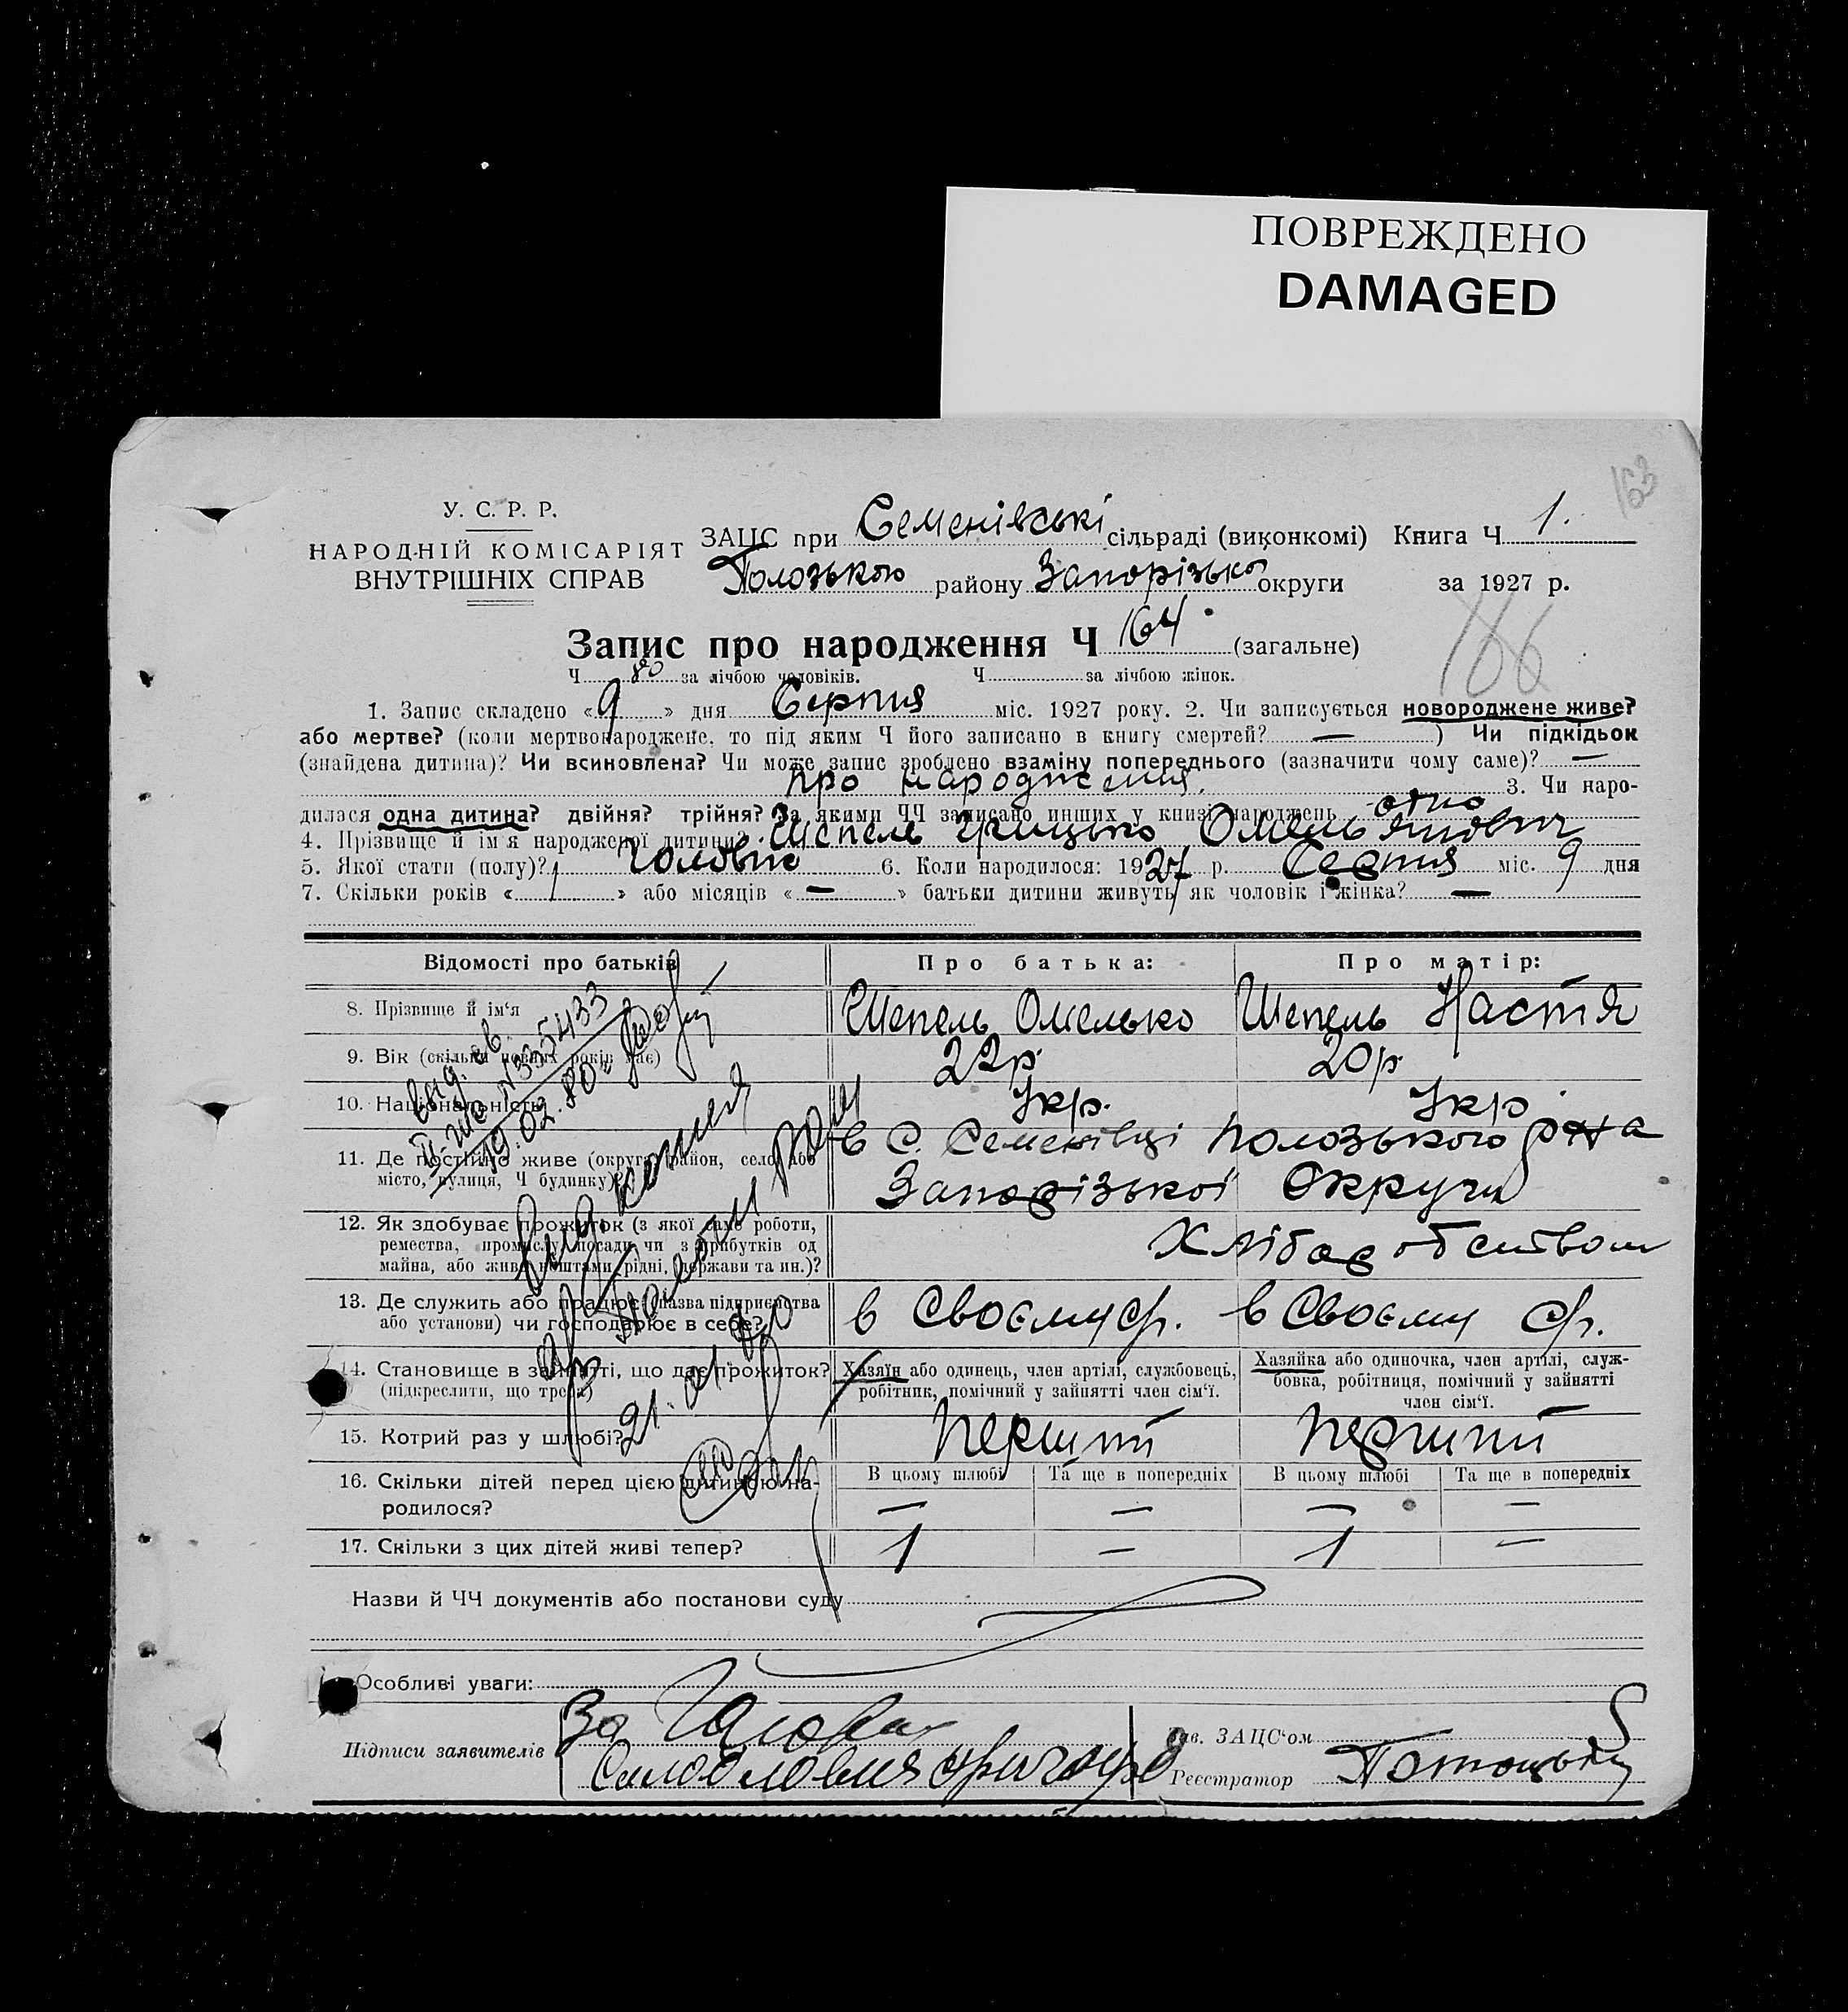 ПОВРЕЖДЕНО
DAMAGED
163
У. С. Р. Р.
НАРОДНІЙ КОМІСАРІЯТ
ВНУТРІШНІХ СПРАВ
ЗАЦС при Семенівські сільраді (виконкомі) Книга Ч 1.
Полозького району Запорізько округи за 1927 р.
166
Запис про народження Ч 164 (загальне)
Ч 80 за лічбою чоловіків. Ч за лічбою жінок.
1. Запис складено «9» дня Серпня міс. 1927 року. 2. Чи записується новороджене живе?
або мертве? (коли мертвонароджене, то під яким Ч його записано в книгу смертей? — ) Чи підкідьок
(знайдена дитина)? Чи всиновлена? Чи може запис зроблено взаміну попереднього (зазначити чому саме)? —
про народження. 3. Чи наро-
дилася одна дитина? двійня? трійня? За якими ЧЧ записано инших у книзі народжень одно
4. Прізвище й ім'я народженої дитини? Шепель Грицько Омельянович
5. Якої стати (полу)? чоловіче 6. Коли народилося: 1927 р. Серпня міс. 9 дня
7. Скільки років « 1 » або місяців « — » батьки дитини живуть як чоловік і жінка? —
Відомості про батьків Про батька: Про матір:
8. Прізвище й ім'я Шепель Омелько Шепель Настя
9. Вік (скільки повних років має) 22р. 20р.
10. Національність Укр. Укр.
11. Де постійно живе (округа, район, село, або
місто, вулиця, Ч будинку)?
в С. Семенівці Полозького р-на
Запорізької Округи
12. Як здобуває прожиток (з якої саме роботи,
ремества, промислу, посади чи з прибутків од
майна, або живе коштами рідні, держави та ин.)?
Хліборобством
13. Де служить або працює (назва підприємства
або установи) чи господарює в себе?
в Своєму г. в Своєму г.
14. Становище в зайнятті, що дає прожиток?
(підкреслити, що треба)
Хазяїн або одинець, член артілі, службовець,
робітник, помічний у зайнятті член сім'ї.
Хазяйка або одиночка, член артілі, служ-
бовка, робітниця, помічний у зайнятті
член сім'ї.
15. Котрий раз у шлюбі? Перший Перший
16. Скільки дітей перед цією дитиною на-
родилося?
В цьому шлюбі Та ще в попередніх В цьому шлюбі Та ще в попередніх
— — — —
17. Скільки з цих дітей живі тепер? 1 — 1 —
Назви й ЧЧ документів або постанови суду
Особливі уваги:
Підписи заявителів За
Зав. ЗАЦС'ом
Реєстратор Потоцький
Выд. св.
№ 335433
19.02.80
Выд копия
21.01